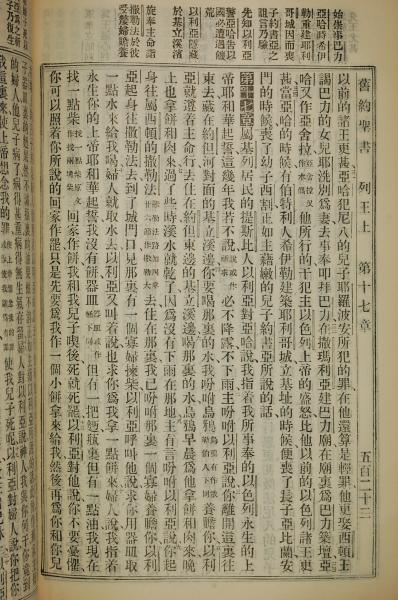 舊約聖書 列王上 第十七章 五百二十二
始崇事巴力
亞哈時希伊
勒重建耶利
哥城因而喪
子約書亞之
詛言乃驗
先知以利亞
警亞哈告以
國必遭遇饑
荒
以利亞隱藏
於基立溪濱
旋奉主命詣
撒勒法於彼
受嫠婦贍養
以前的諸王更甚亞哈犯尼八的兒子耶羅波安所犯的罪在他還算是輕罪他更娶西頓王
謁巴力的女兒耶洗別為妻去事奉叩拜巴力在撒瑪利亞建巴力廟在廟裏為巴力築壇亞
哈又作亞舍拉他所行的干犯主以色列上帝的盛怒比他以前的以色列諸王更
甚當亞哈的時候有伯特利人希伊勒建築耶利哥城立基址的時候便喪了長子亞比蘭安
門的時候喪了幼子西割正如主藉嫩的兒子約書亞所說的話
第十七章基列居民的提斯比人以利亞對亞哈說我指着我所事奉的以色列永生的上
帝耶和華起誓這幾年我若不說必不降露不下雨主吩咐以利亞說你離開這裏往
東去藏在約但河對面的基立溪邊你要喝那裏的水我吩咐烏鴉養贍你以利
亞就遵着主命行去住在約但東邊的基立溪邊喝那裏的水烏鴉早晨給他拿餅和肉來晚
上也拿餅和肉來過了些時溪水就乾了因為沒有下雨在那地主有言吩咐以利亞說你起
身往屬西頓的撒勒法去住在那裏我已吩咐那裏一個寡婦養贍你以利
亞起身往撒勒法去到了城門口見那裏有一個寡婦揀柴以利亞呼叫他說求你用器皿取
一點水來給我喝婦人就取水去以利亞又叫着說也求你為我拿一點餅來婦人說我指着
永生你的上帝耶和華起誓我沒有餅器皿但有一把麵瓶裏但有一點油我現在
找一點柴回家作餅我和我兒子喫後死就死罷以利亞對他說你不要懼
你可以照着你所說的回家作罷只是先要為我作一個小餅拿來給我然後再為你和你兒